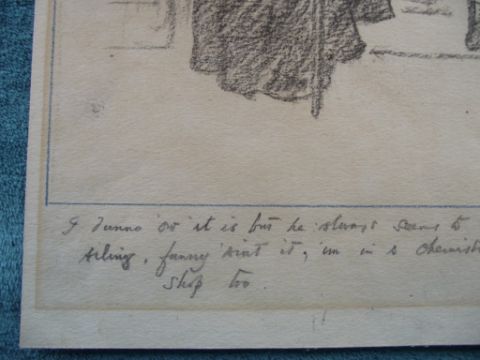 I dunno 'ow it is but he always seems to
ailing, funny 'aint it, 'im in a Chemists
Shop too.